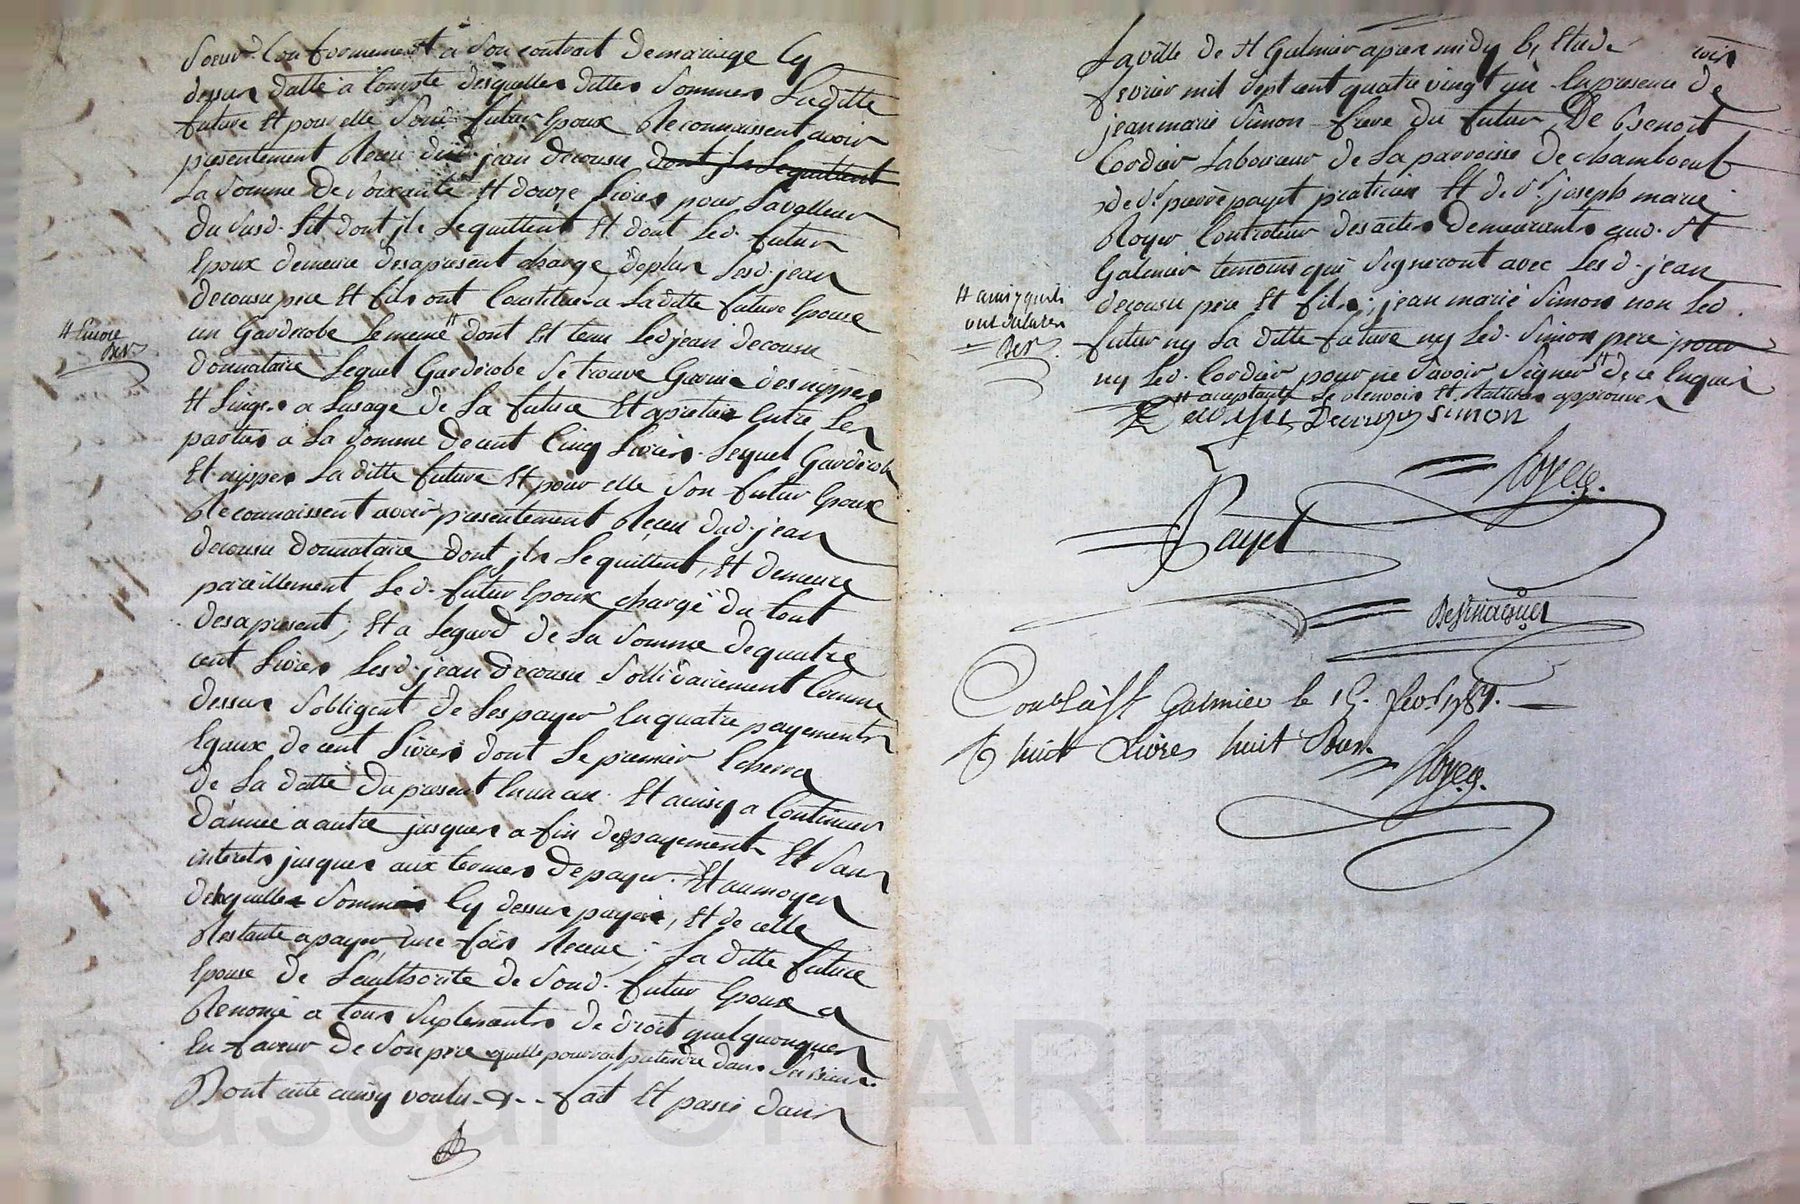 Soeur Conformement a Son contrait de mariage Cy
dessus datté a Compte desquelles dittes Sommes Laditte
future Et pour elle Sond futur Epoux Reconnaissent avoir
presentement Receu dud. jean decousu dont jls Lequittent
La Somme de soixante Et douze Livres pour Lavalleur
du Susd. Lit dont jls Lequittent Et dont Led. futur
Epoux demeure desapresent chargé, deplus Lesd. jean
decousu pere Et fils ont Constitué a Laditte future Epouse
un Garderobe Lememe dont Est tenu Led jean decousu
donnataire Lequel Garderobe Se trouve Garnie des nippes
Et Linges a Lusage de La future Et apretié Entre Les
parties a La Somme de cent Cinq Livres. Lequel Garderobe
Et nippes La ditte future Et pour elle Son futur Epoux
Reconnaissent avoir presentement Receu dud. jean
decousu donnataire dont jls Lequittent, Et demeure
pareillement Led. futur Epoux chargé du tout
desapresent, Et a Legard de La Somme de quatre
cent Livres Lesd. jean decousu Sollidairement Comme
dessus Sobligent de Les payer En quatre payements
Egaux de cent Livres dont Le premier Echerra
de La datte du present En un an. Et ainsy a Continuer
d'année a autre jusques a fin de payement Et Sans
interets jusques aux termes de payer. Et au moyen
desquelles Sommes Cy dessus payées, Et de celle
Restante a payer une fois Receue; La ditte future
Epouse de Lauthorité de Sond. futur Epoux a
Renoncé a tous Suplements de droit quelquonques
En faveur de Son pere quelle pourroit pretendre dans Ses biens.
Dont acte ainsy voulu - fait Et passé dans
Et Encore
La ville de St Galmier apres midy Le
fevrier mil Sept cent quatre vingt En presence de
jean marie Simon frere du futur De Benoit
Cordier Laboureur de La parroisse de chamboeuf
de Sr. pierre payet praticien Et de Sr. joseph marie
Royer Controleur des actes demeurants aud. St
Galmier temoins qui Signeront avec Lesd. jean
decousu pere Et fils; jean marie Simon non Led.
futur ny La ditte future ny Led. Simon pere pour
ny Led. Cordier pour ne Savoir Signer de ce Enquis
Et ainsy quils
ont déclaré
Decousu Decousu SIMON
Royer.
Payet
Desjnaques
Con.lé à St Galmier le 15. fev. 178
R huit Livres huit Sous
Royer.
Pascal CHAREYRON